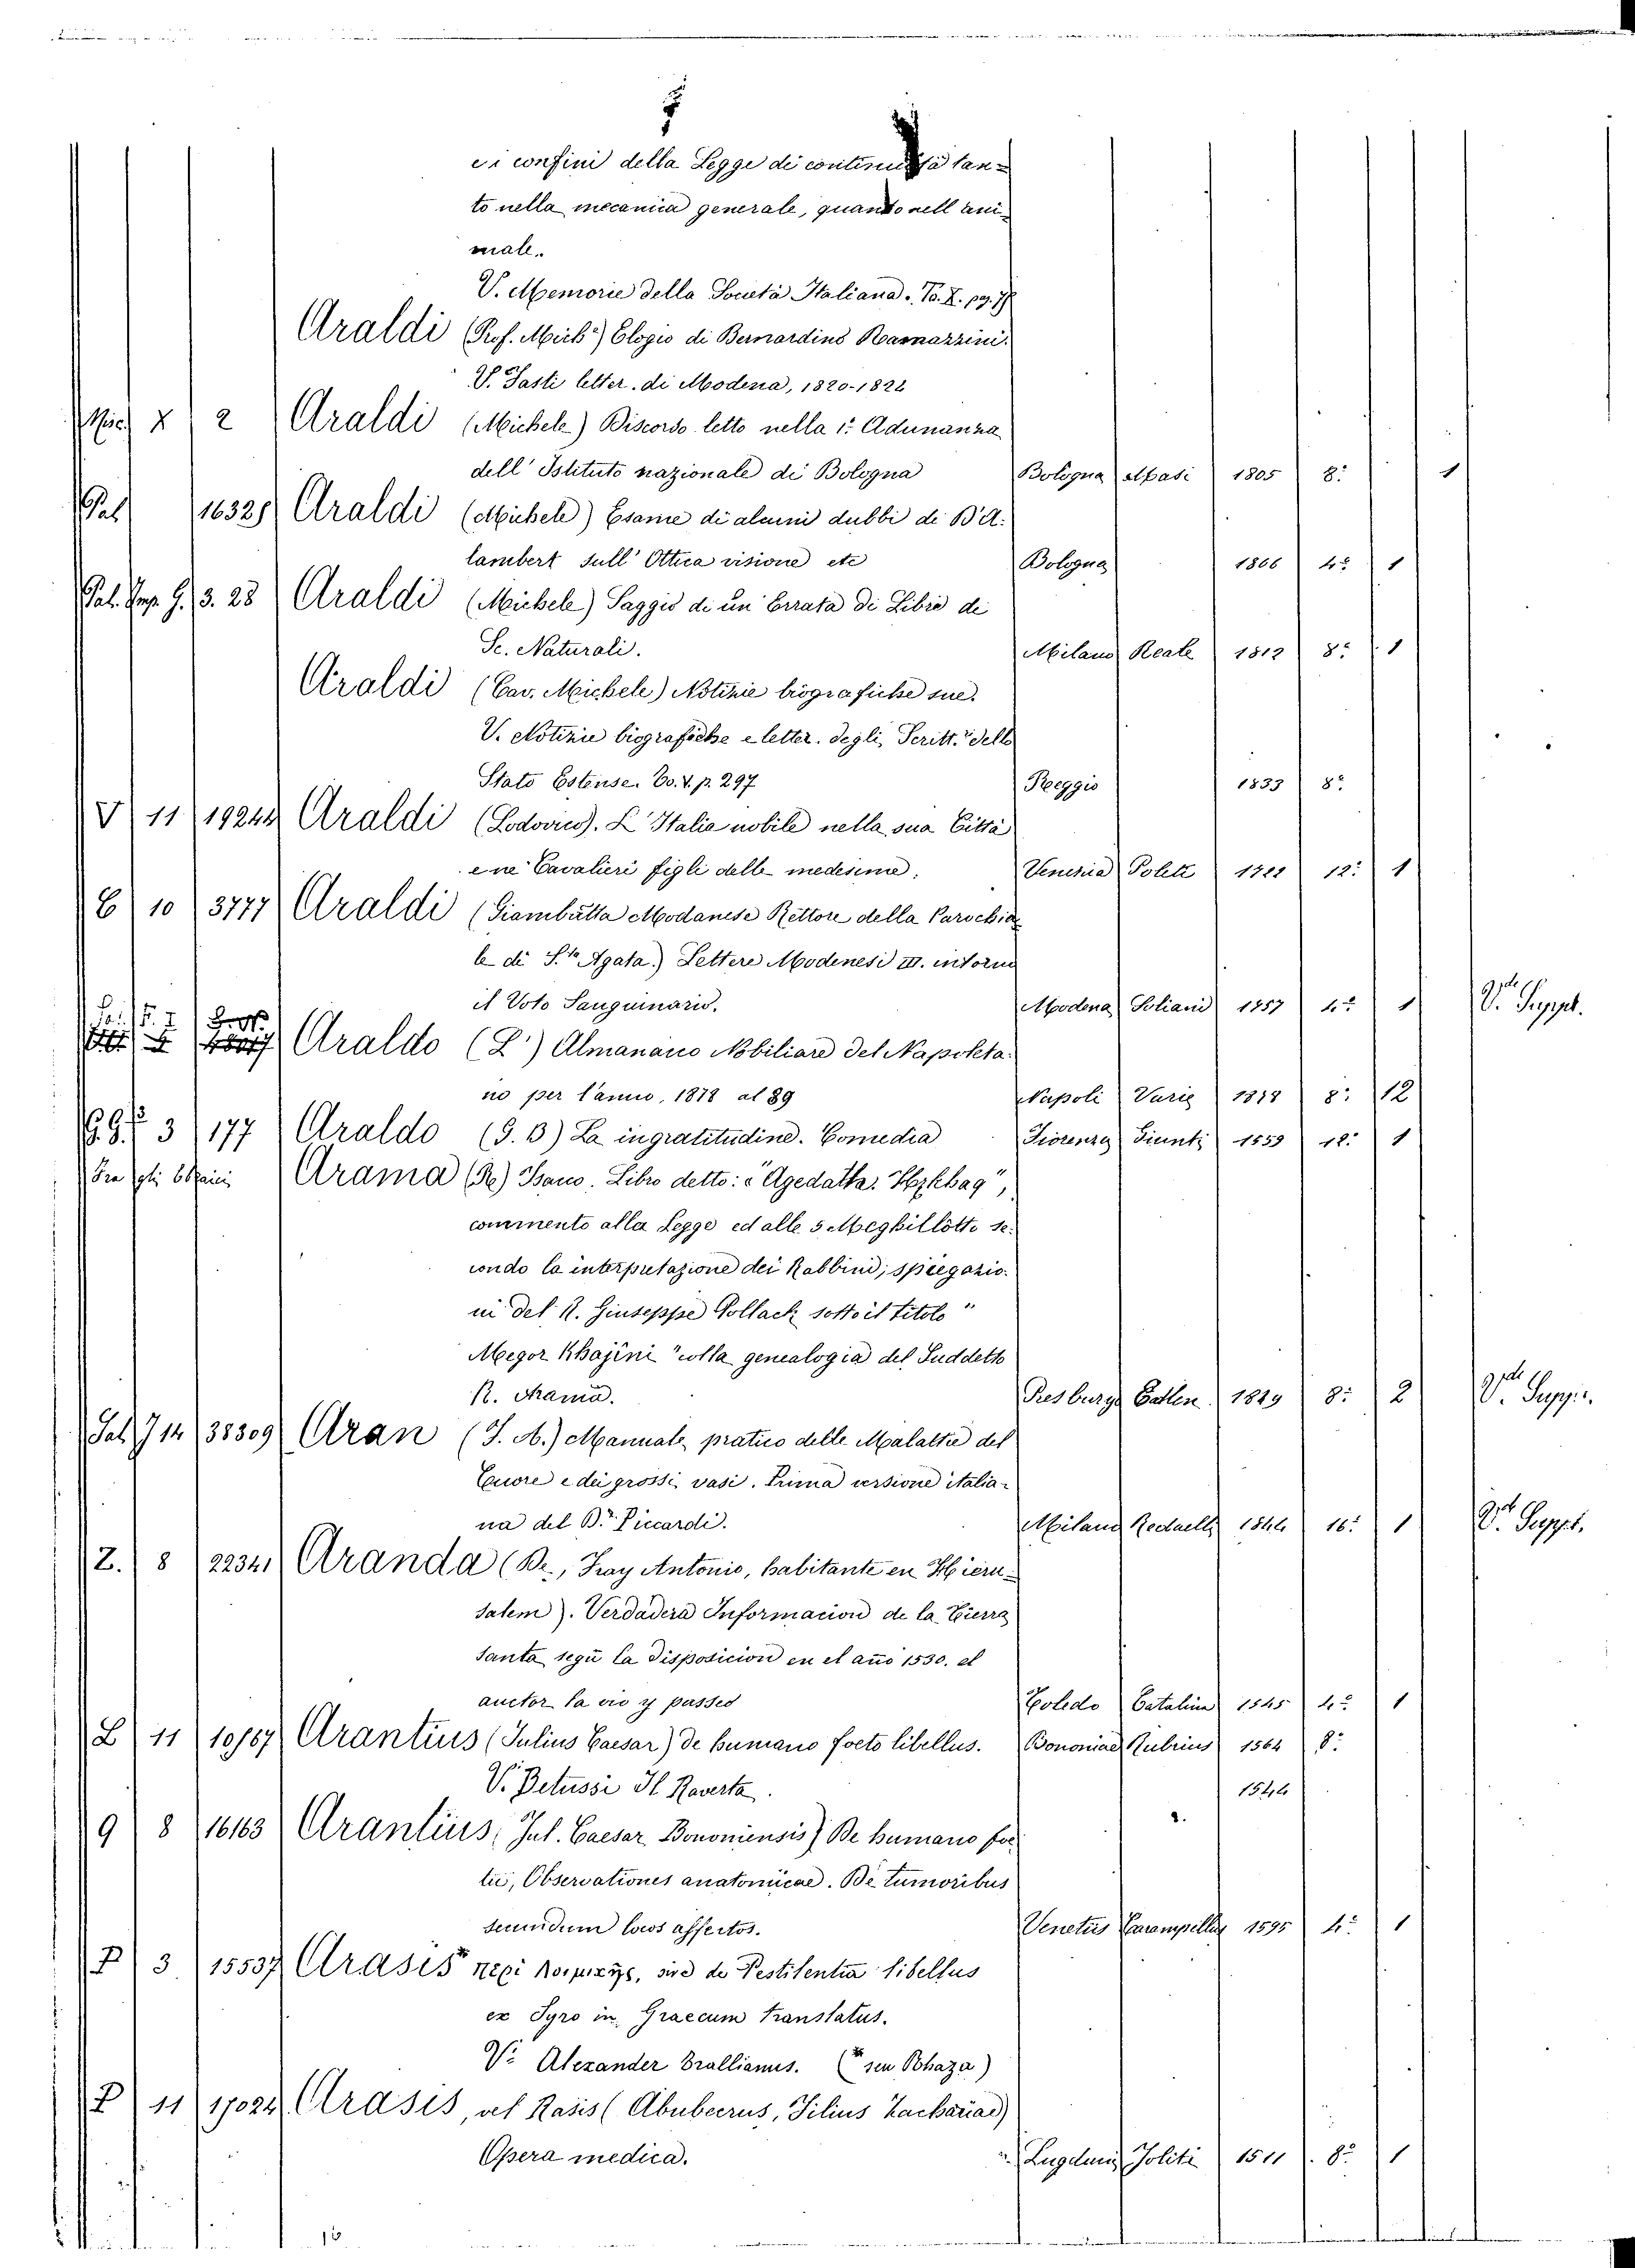 e i confini della Legge di continuità tan=
to nella mecanica generale, quanto nell ani
male.
V. Memorie della Società Italiana. To. X. pg.
Araldi (Prof. Mich.) Elogio di Bernardino Ramazzini.
V. Fasti letter. di Modena, 1820-1822
Misc. X 2 Araldi (Michele) Discorso letto nella 1ª Adunanza
dell' Istituto nazionale di Bologna Bologna Masi 1805 8º 1
Pal. 16328 Araldi (Michele) Esame di alcuni dubbi di D'A.
lambert sull' Ottica visione etc Bologna 1806 4º 1
Pal. G. 3. 28 Araldi (Michele) Saggio di un Errata di Libri di
Sc. Naturali. Milano Reale 1812 8º 1
Araldi (Cav. Michele) Notizie biografiche sue.
V. Notizie biografiche e letter. degli Scritt. dello
Stato Estense. To. V. p. 297 Reggio 1833 8º
V 11 19244 Araldi (Lodovico). L' Italia nobile nella sua Città
e ne Cavalieri figli delle medesime. Venezia Poleti 1722 12º 1
E 10 3777 Araldi (Giambatta Modanese Rettore della Parochia
le di S.ta Agata.) Lettere Modenesi III. intorno
il Voto Sanguinario. Modena Soliani 1757 4º 1 V. Suppl.
Araldo (L') Almanacco Nobiliare del Napoleta.
no per l'anno, 1878 al 89 Napoli Varie 1878 8º 12
3 177 Araldo (G. B) La ingratitudine. Comedia Fiorenza Giunti 1559 12º 1
Fra gli Ebraici Arama (R.) Isaco. Libro detto: "Agedatha. Hzkhag",
commento alla Legge ed alle 5 Meghillotte se.
condo la interpretazione dei Rabbini; spiegazio.
ni del R. Giuseppe Pollack sotto il titolo "
Megor Khajini" colla genealogia del Suddetto
R. Arama. Presburgo 1849 8º 2 V. Suppl.
Sal. J 14 38309 Aran (F. A.) Manuale pratico delle Malattie del
Cuore e dei grossi vasi. Prima versione italia=
na del D.r Piccardi. Milano Redaelli 1844 16º 1 V. Suppl.
Z. 8 22341 Aranda (De, Fray Antonio, habitante en Hieru=
salem). Verdadera Informacion de la Tierra
santa segu la disposicion en el año 1530. el
auctor la vio y passeo Toledo Catalina 1545 4º 1
L 11 10767 Arantius (Julius Caesar) de humano foeto libellus. Bononiae Rubrius 1564 8º
V. Betussi Il Raverta. 1544
9 8 16163 Arantius, Jul. Caesar Bononiensis) De humano foe
tu, Observationes anatomicae. De tumoribus
secundum locos affectos. Venetiis Carampellus 1595 4º 1
P 3 15537 Arasis* περί λοιμικῆς, sive de Pestilentia libellus
ex Syro in Graecum translatus.
V. Alexander Trallianus. (* seu Rhaza)
P 11 17024 Arasis, vel Rasis (Abubecrus, Filius Zachariae)
Opera medica. Lugduni Joliti 1511 8º 1